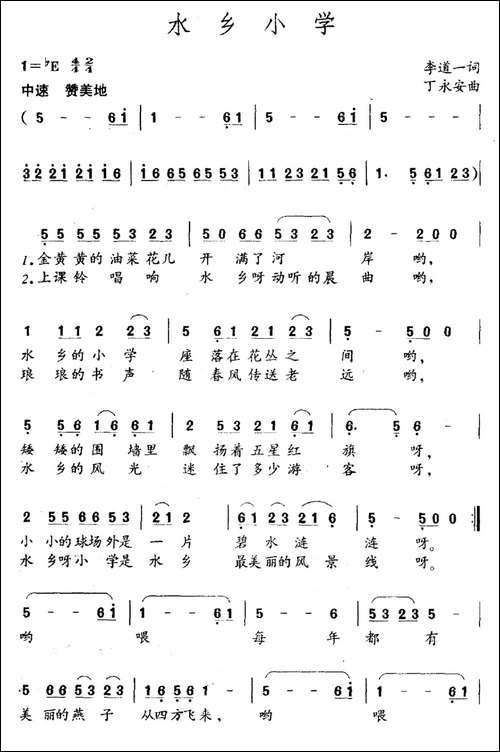 水乡小学
1=♭E 4/4 2/4
李道一词
中速 赞美地
丁永安曲
(5 - - 6i | 1 - - 61 | 5 - - 6i | 5 - - - |
32 21 21 16 | 16 65 65 53 | 11 23 21 56 | 1. 5 61 23) |
55 55 53 23 | 50 66 53 23 | 2 - 200 |
1.金黄黄的油菜花儿 开 满了河 岸 哟,
2.上课铃 唱响 水 乡呀动听的晨 曲 哟,
1 11 2 23 | 5 61 21 23 | 5 - 500 |
水 乡的小学 座 落在花丛之 间 哟,
琅 琅的书声 随 春风传送老 远 哟,
5 56 16 61 | 2 53 21 61 | 6. 5 6 - |
矮 矮的围 墙里 飘 扬着五星红 旗 呀,
水 乡的风 光 迷 住了多少游 客 呀,
2 55 66 53 | 21 2 | 61 23 216 | 5 - 500 :|
小 小的球场外是一 片 碧 水 涟 涟 呀。
水 乡呀小 学是水 乡 最美丽的风 景 线 呀。
5 - - 6i | 1 - - 61 | 5 - 6 - | 53 23 5 - |
哟 喂 每 年 都 有
5 66 53 23 | 16 56 1 - | 5 - - 6i | 1 - - 61 |
美 丽的燕 子 从四方飞来, 哟 喂